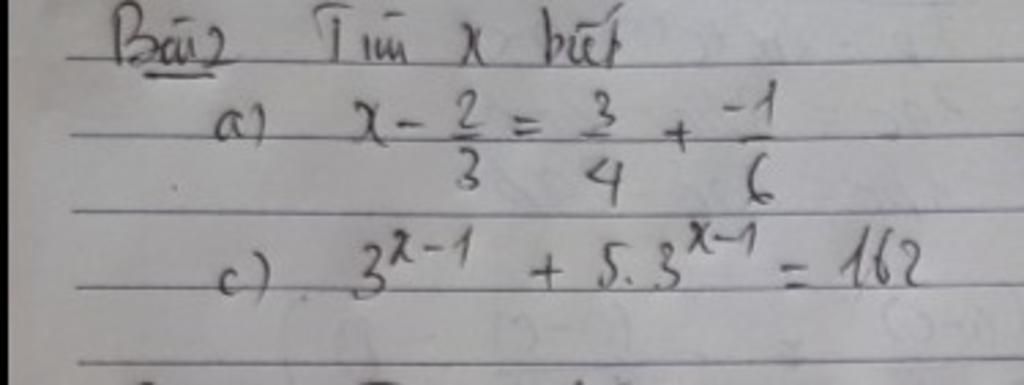 Bài 2 Tìm x biết
a) x - 2/3 = 3/4 + -1/6
c) 3^{x-1} + 5.3^{x-1} = 162